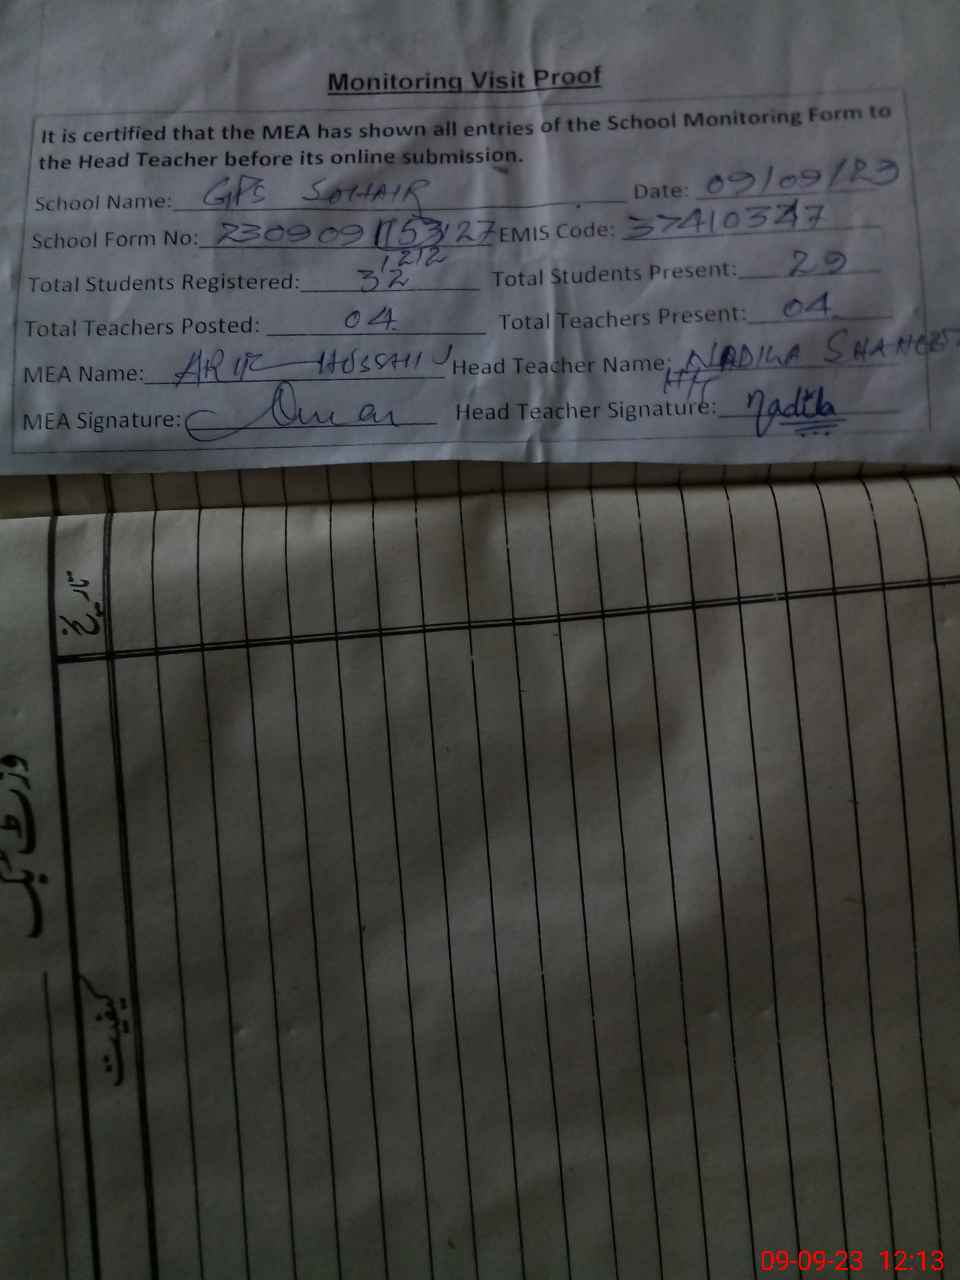 Monitoring Visit Proof
It is certified that the MEA has shown all entries of the School Monitoring Form to
the Head Teacher before its online submission.
School Name: GPS SOHAIR Date: 09/09/23
School Form No: 230909 27 EMIS Code:
1212
Total Students Registered: 32 Total Students Present: 29
Total Teachers Posted: 04 Total Teachers Present: 04
MEA Name: Head Teacher Name: NADILA
MEA Signature: Head Teacher Signature: Nadila
تاریخ
وزٹ بک
کیفیت
09-09-23 12:13